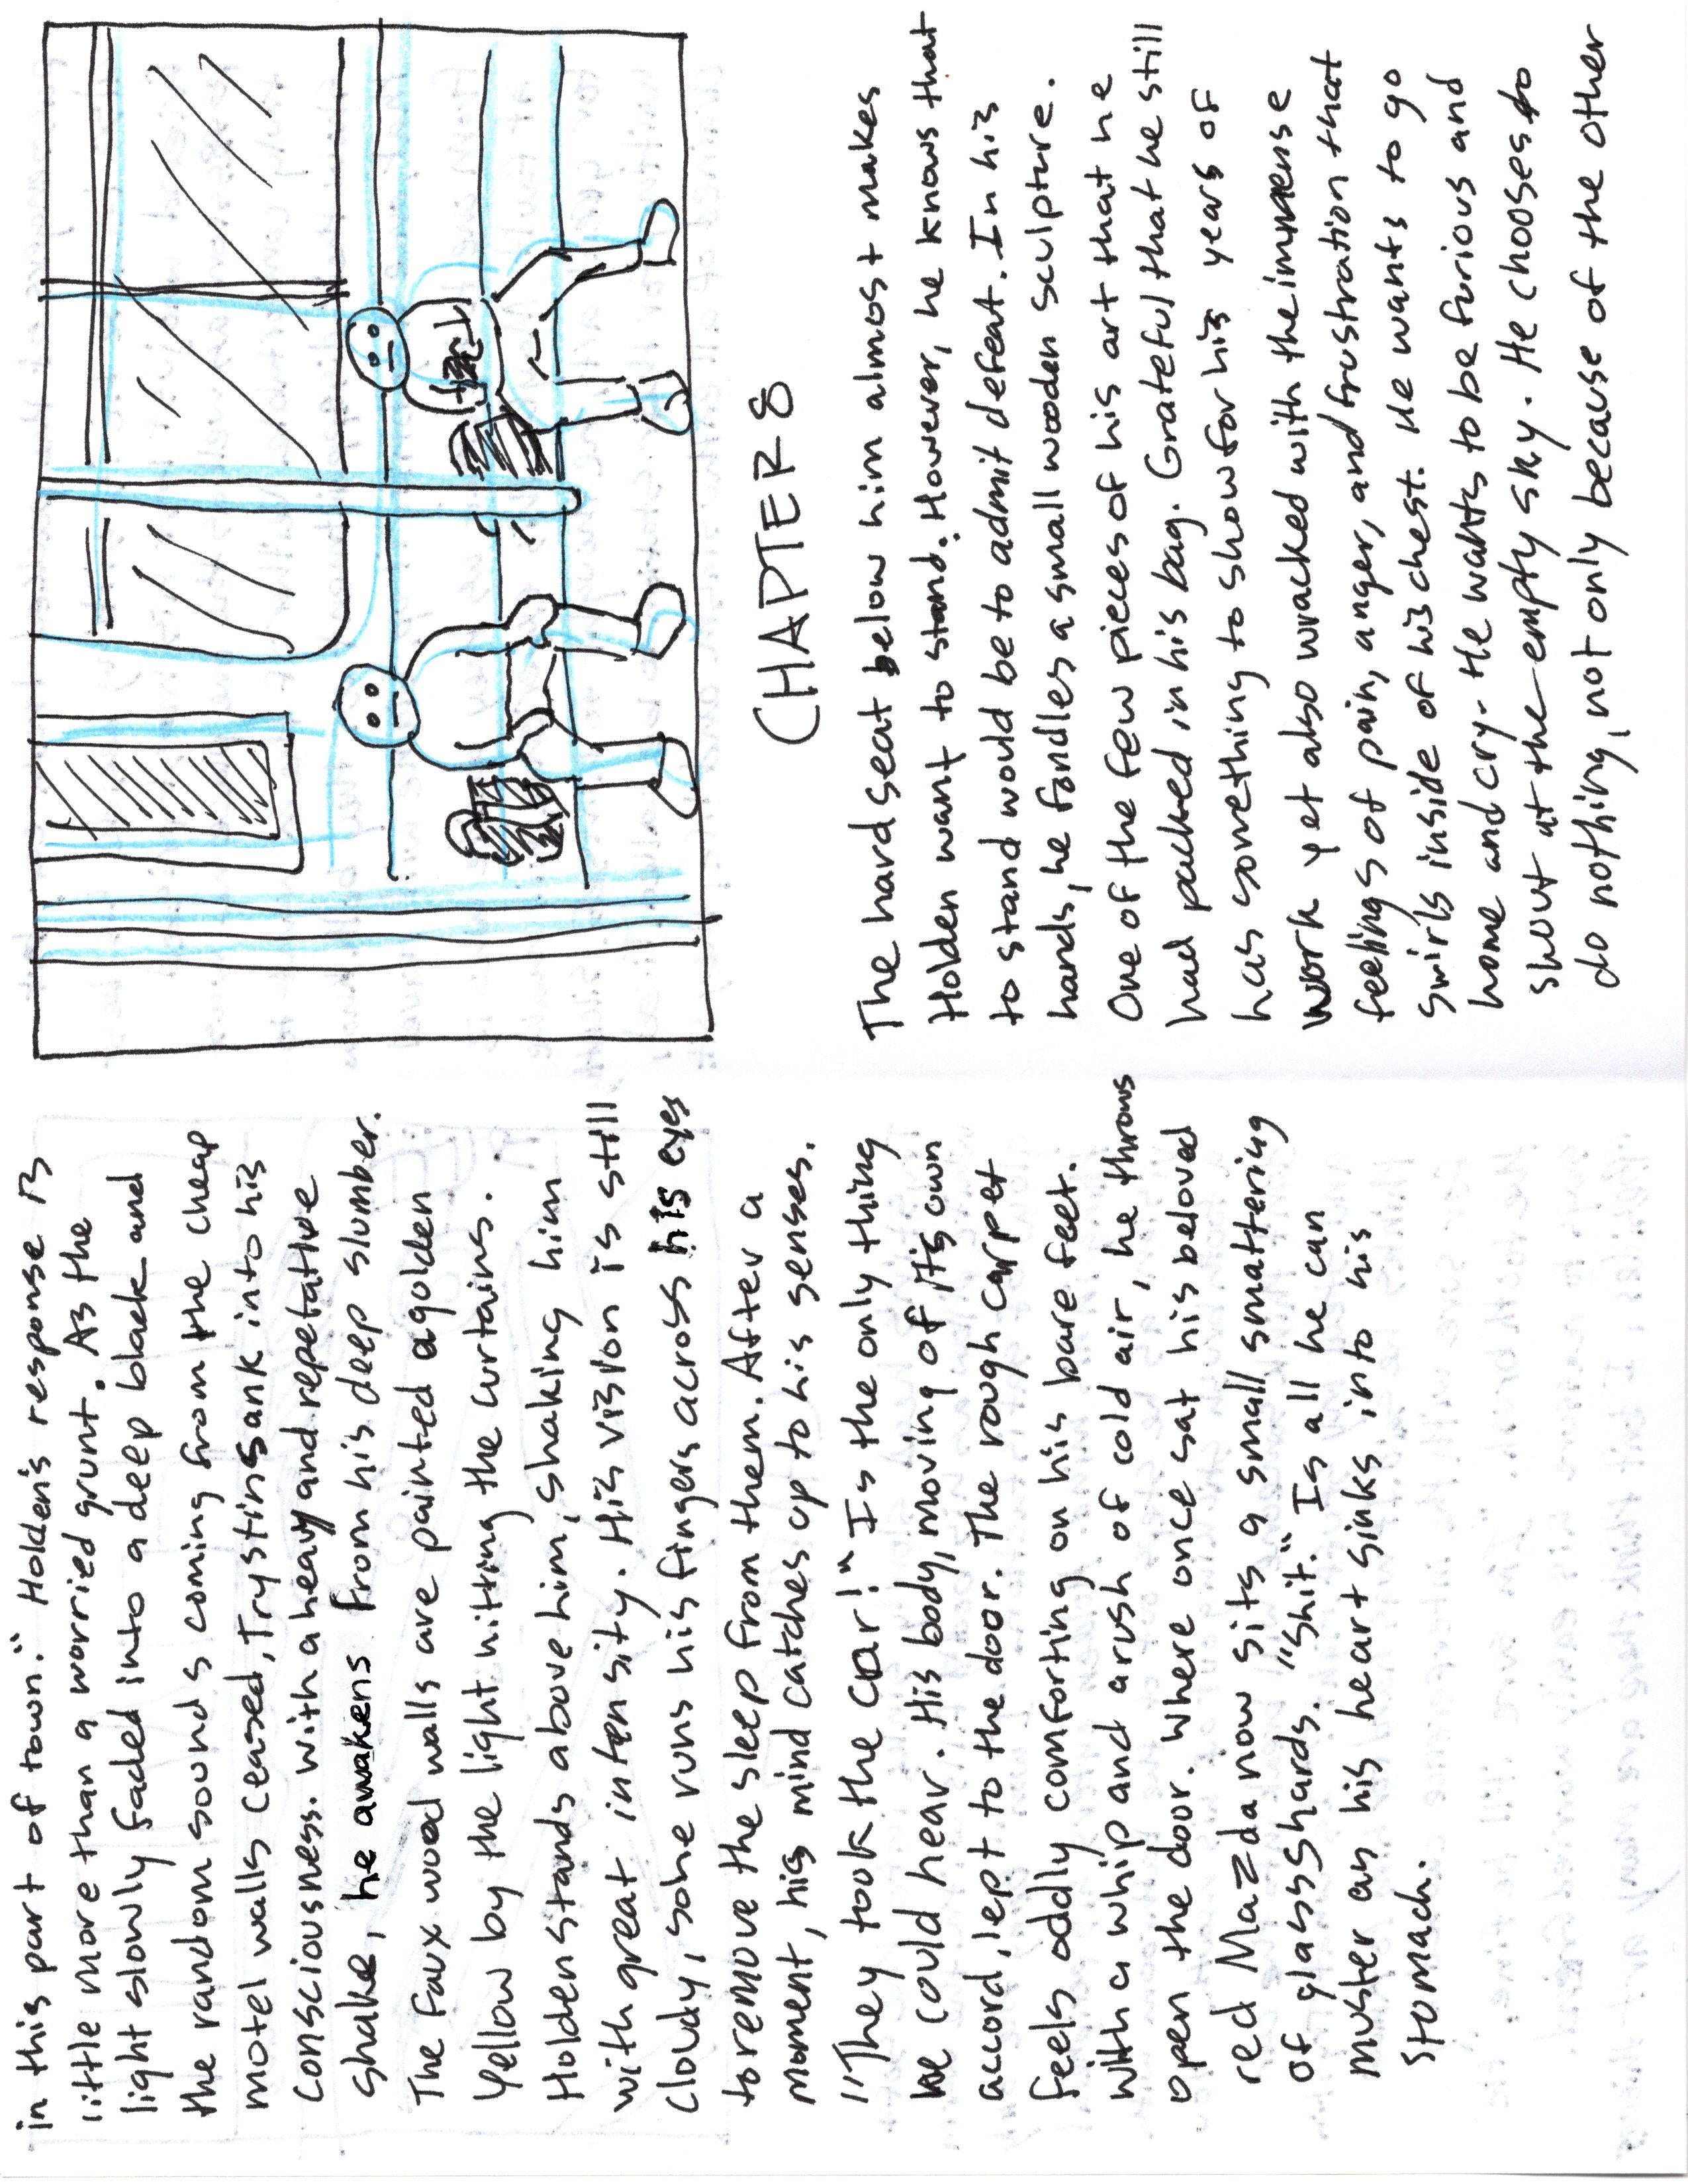 in this part of town." Holden's response is
little more than a worried grunt. As the
light slowly faded into a deep black and
the random sounds coming from the cheap
motel walls ceased, Trystin sank into his
consciousness. With a heavy and repetative
shake, he awakens from his deep slumber.
The faux wood walls are painted a golden
yellow by the light hitting the curtains.
Holden stands above him, shaking him
with great intensity. His vision is still
cloudy, so he runs his fingers across his eyes
to remove the sleep from them. After a
moment, his mind catches up to his senses.
"They took the car!" Is the only thing
he could hear. His body, moving of its own
accord, lept to the door. The rough carpet
feels oddly comforting on his bare feet.
With a whip and a rush of cold air, he throws
open the door. Where once sat his beloved
red Mazda now sits a small smattering
of glass shards. "Shit." Is all he can
muster as his heart sinks into his
stomach.
CHAPTER 8
The hard seat below him almost makes
Holden want to stand. However, he knows that
to stand would be to admit defeat. In his
hands, he fondles a small wooden sculpture.
One of the few pieces of his art that he
had packed in his bag. Grateful that he still
has something to show for his years of
work yet also wracked with the immense
feelings of pain, anger, and frustration that
swirls inside of his chest. He wants to go
home and cry. He wants to be furious and
shout at the empty sky. He chooses to
do nothing, not only because of the other